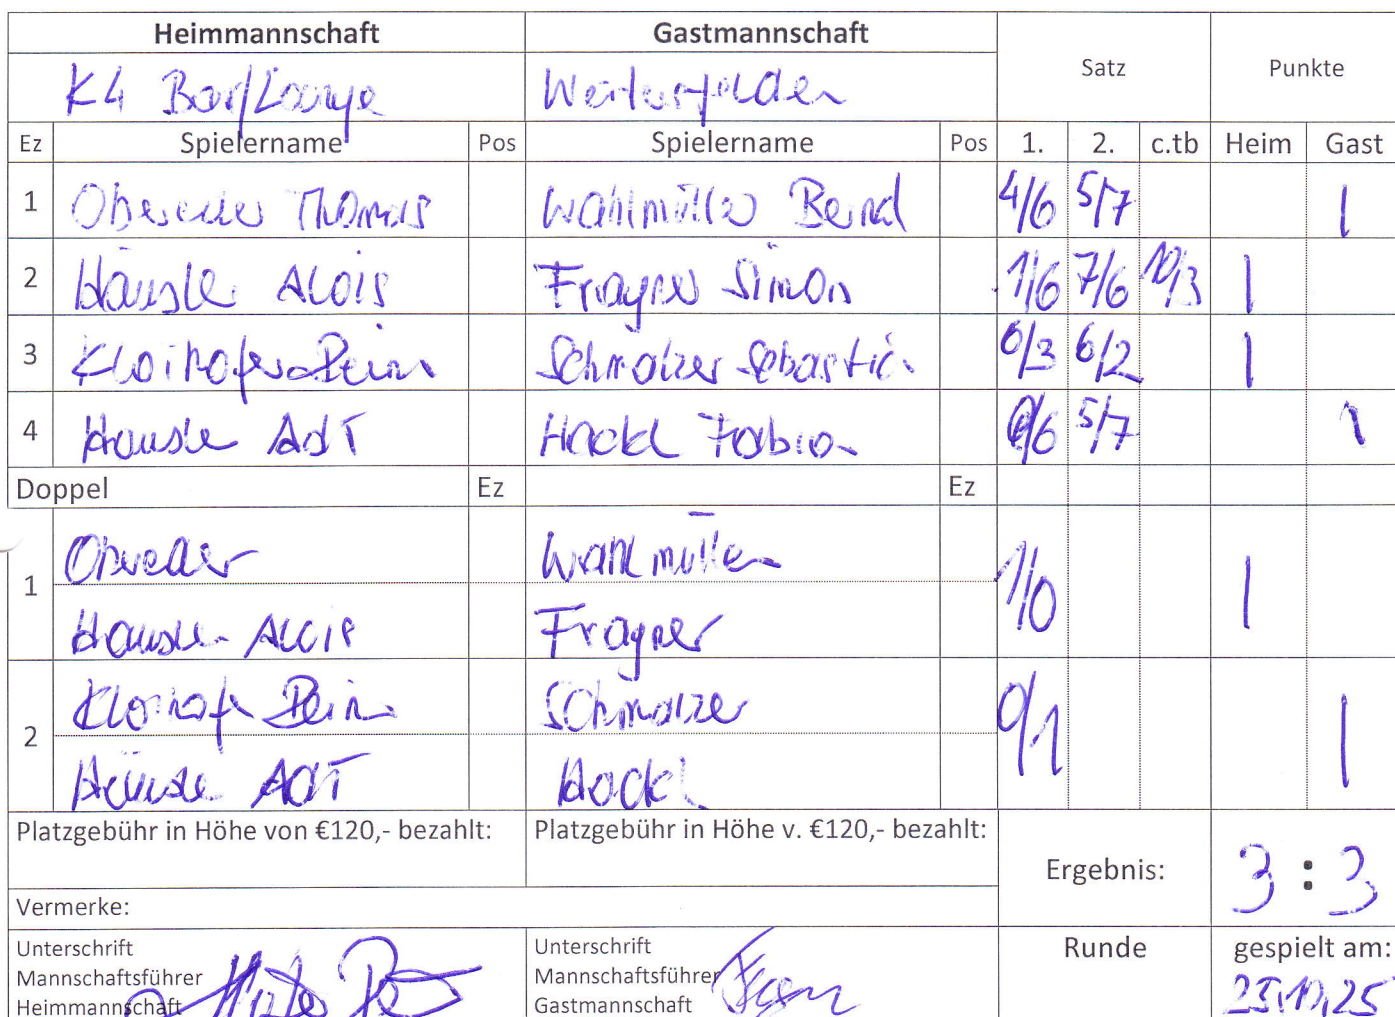 Heimmannschaft Gastmannschaft Satz Punkte
K4 Bar/Lounge Weitersfelden
Ez Spielername Pos Spielername Pos 1. 2. c.tb Heim Gast
1 Obereder Thomas Wahlmüller Bernd 4/6 5/7 1
2 Häusle Alois Fragner Simon 1/6 7/6 10/3 1
3 Kloihofer Schmalzer Sebastia 6/3 6/2 1
4 Hausle Hackl Fabian 5/7 1
Doppel Ez Ez
1 Obereder Wahlmüller 1/0 1
Hausle Alois Fragner
2 Kloihofe Schmalzer 0/1 1
Häusle Hackl
Platzgebühr in Höhe von €120,- bezahlt: Platzgebühr in Höhe v. €120,- bezahlt: Ergebnis: 3 : 3
Vermerke:
Unterschrift Unterschrift Runde gespielt am:
Mannschaftsführer Mannschaftsführer
Heimmannschaft Gastmannschaft 25.10.25